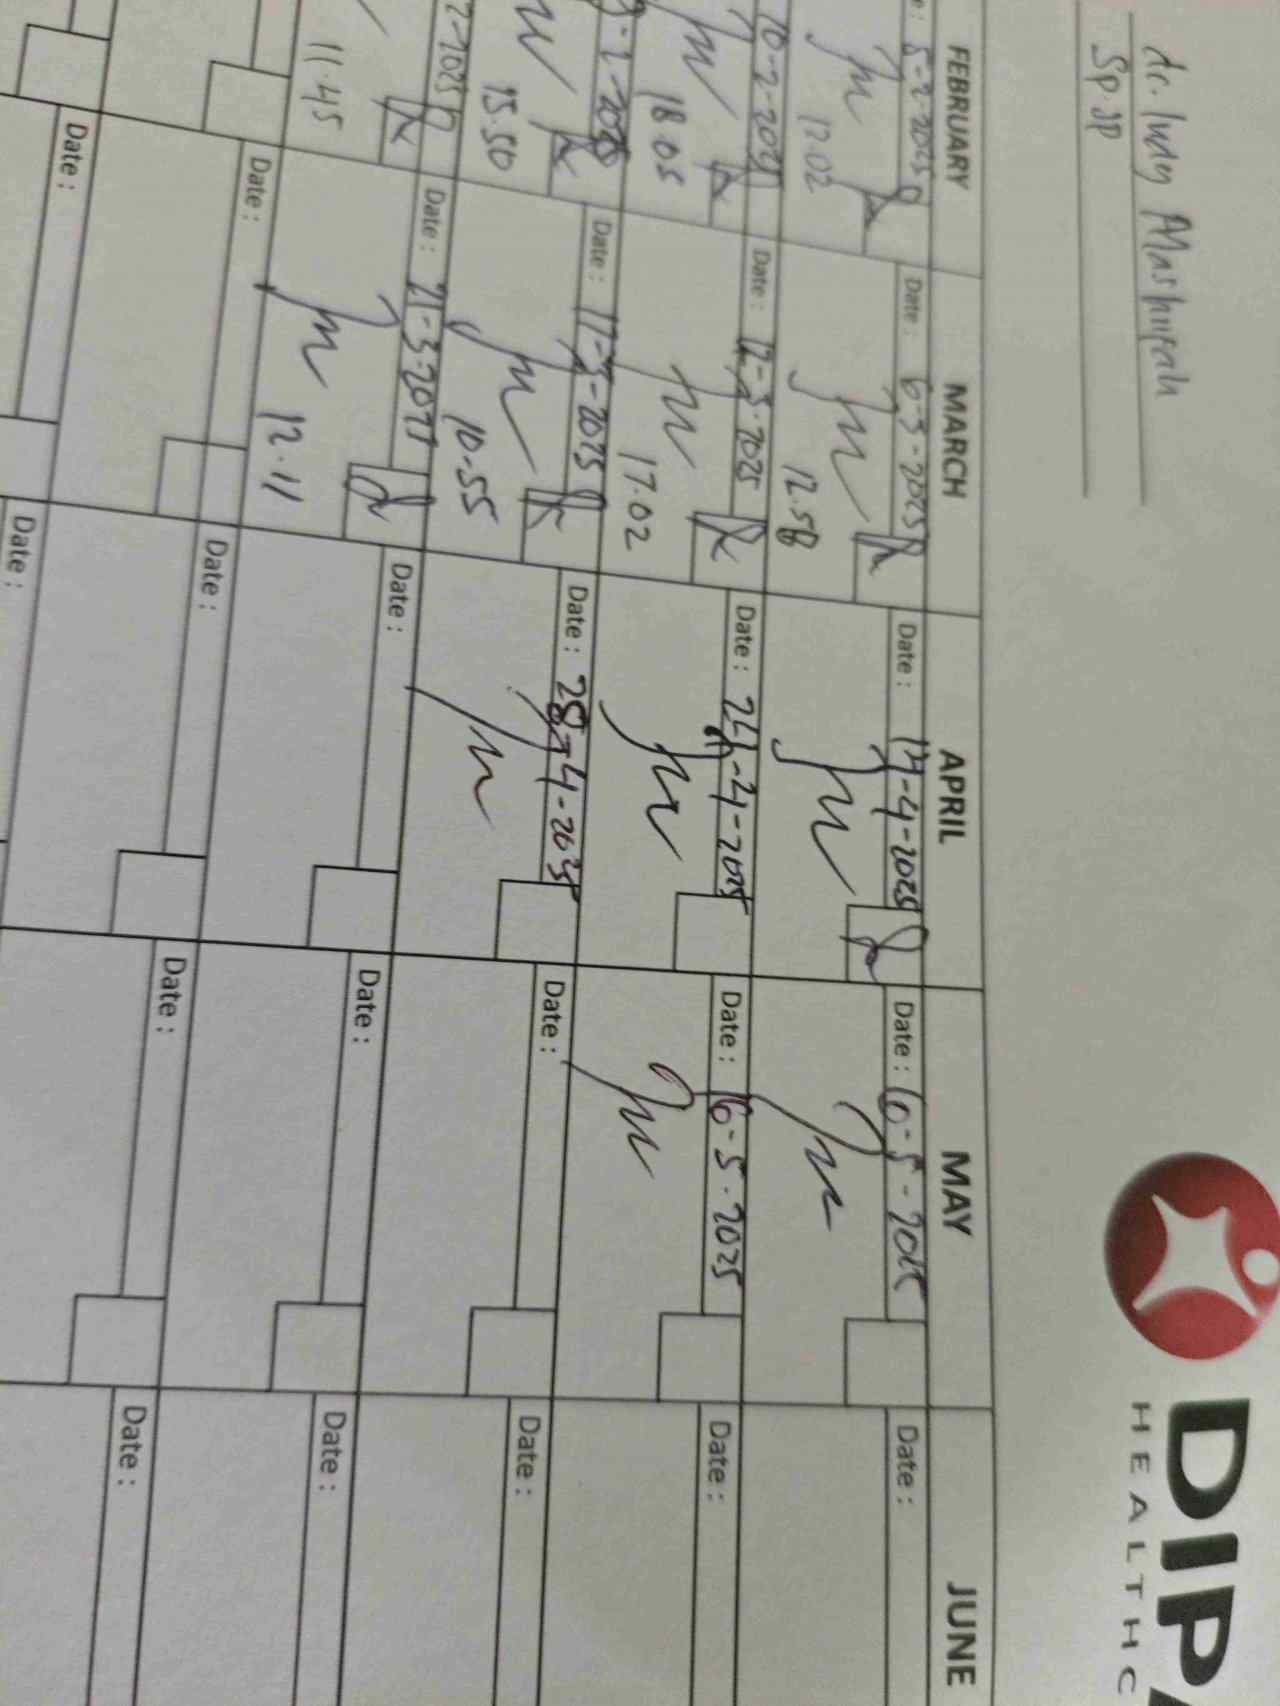 DIPA
HEALTHC
dr. Indy Mashfirah
Sp.JP
FEBRUARY MARCH APRIL MAY JUNE
e: 5-2-2025 Date: 6-3-2025 Date: 14-4-2025 Date: 10-5-2025 Date:
12.02 12.58
10-2-2025 Date: 12-3-2025 Date: 24-4-2025 Date: 16-5-2025 Date:
18.05 17.02
Date: 17-3-2025 Date: 28-4-2025 Date: Date:
15.50 10-55
Date: 21-3-2025 Date: Date: Date:
11.45 12.11
Date: Date: Date: Date:
Date: Date: